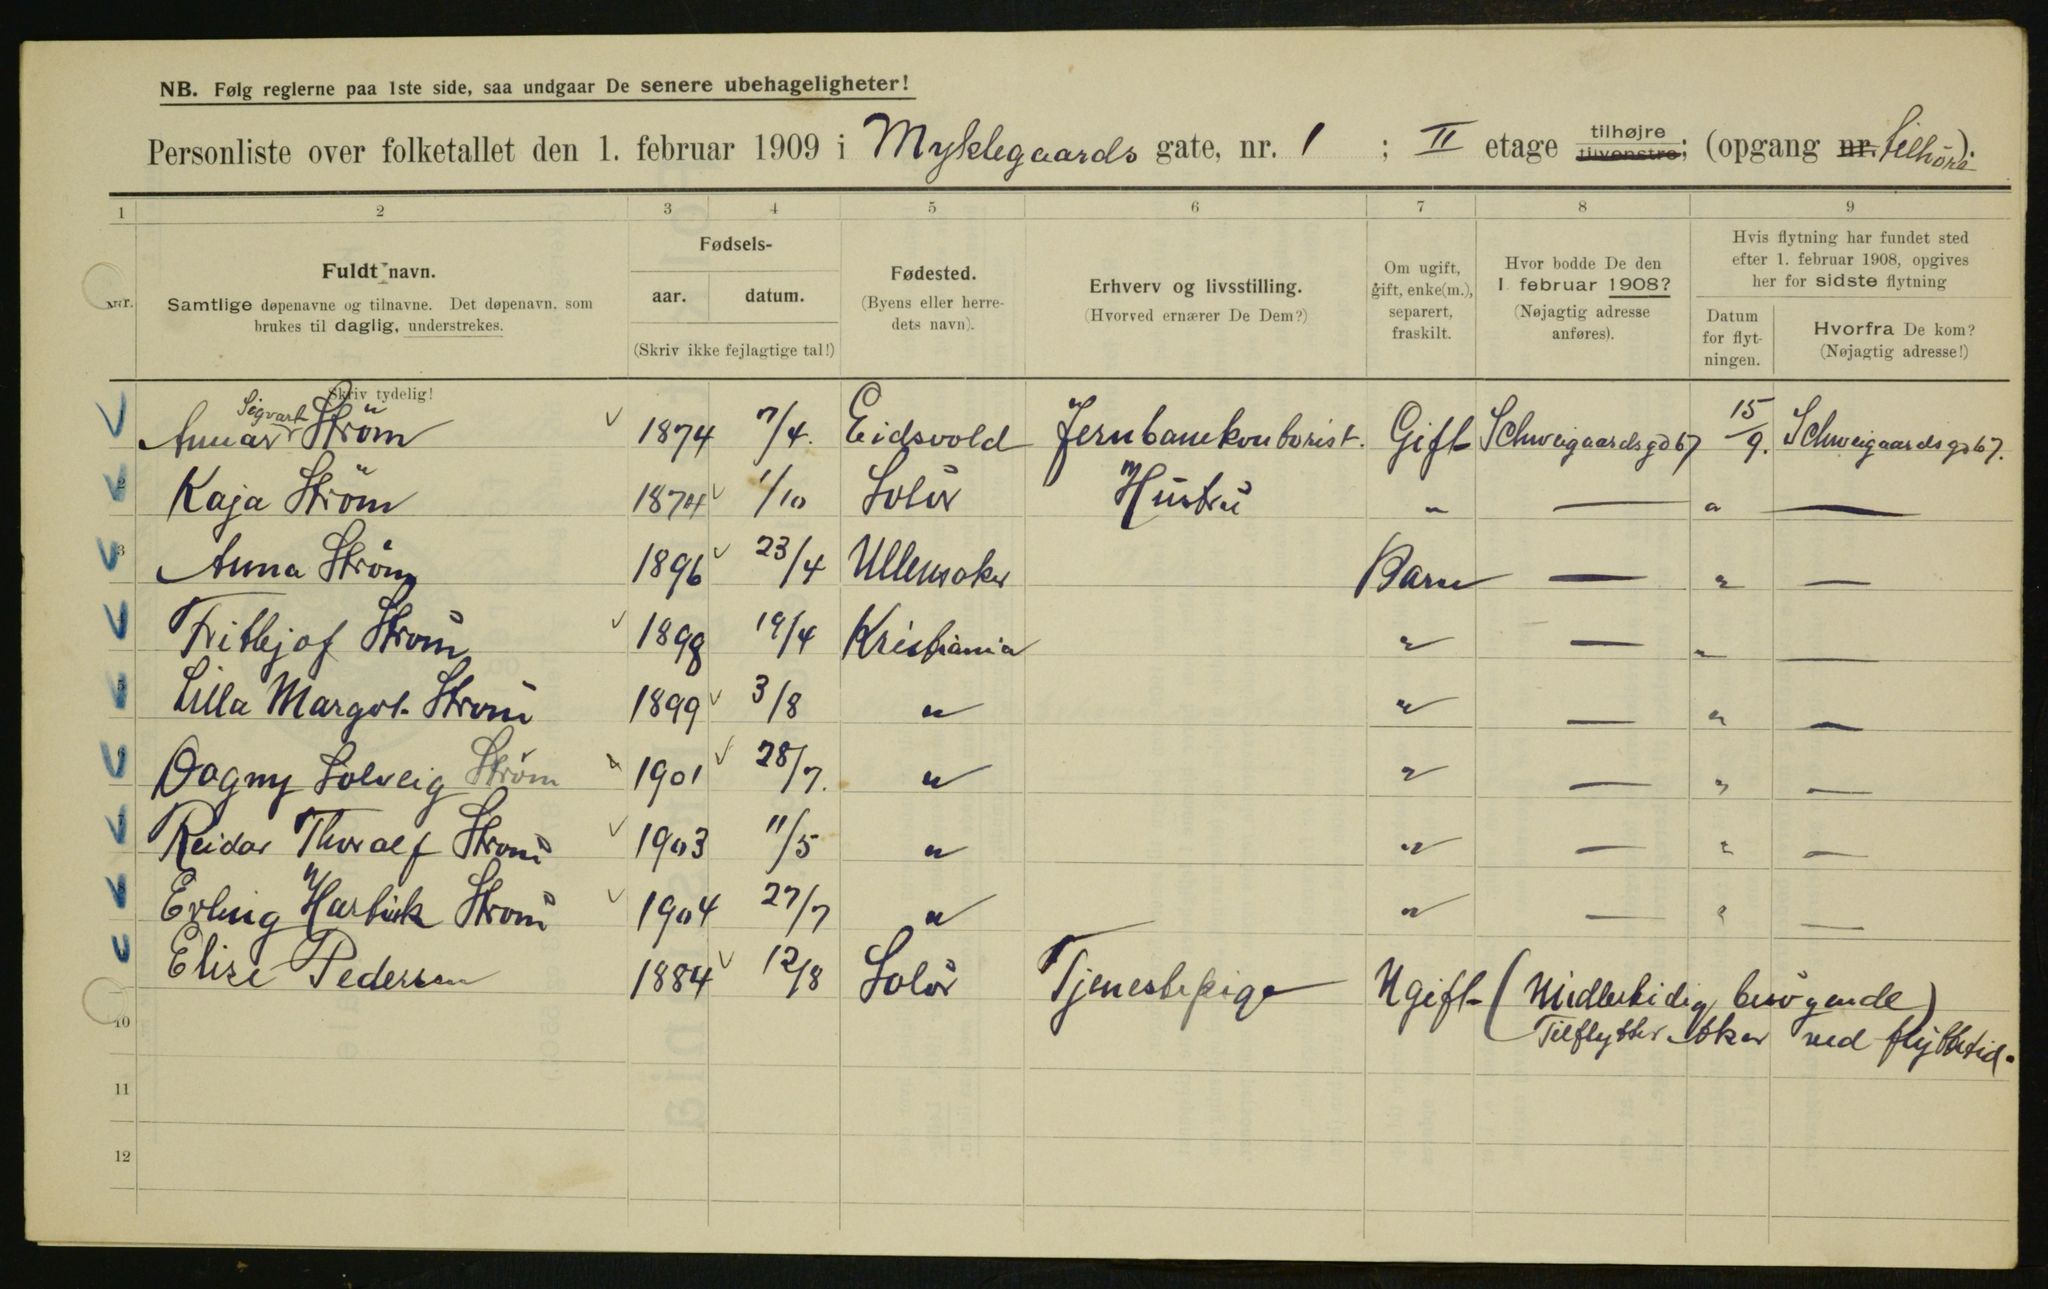 NB. Følg reglerne paa 1ste side, saa undgaar De senere ubehageligheter!
Personliste over folketallet den 1. februar 1909 i Myklegaards gate, nr. 1 ; II etage tilhøjre tilvenstre; (opgang nr. tilhöire).
1 2 3 4 5 6 7 8 9
Nr.
Fuldt navn.
Samtlige døpenavne og tilnavne. Det døpenavn, som
brukes til daglig, understrekes.
Skriv tydelig!
Fødsels-
aar. datum.
(Skriv ikke fejlagtige tal!)
Fødested.
(Byens eller herre-
dets navn).
Erhverv og livsstilling.
(Hvorved ernærer De Dem?)
Om ugift,
gift, enke(m.),
separert,
fraskilt.
Hvor bodde De den
1. februar 1908?
(Nøjagtig adresse
anføres).
Hvis flytning har fundet sted
efter 1. februar 1908, opgives
her for sidste flytning
Datum
for flyt-
ningen.
Hvorfra De kom?
(Nøjagtig adresse!)
Sigvart
Annar Ström 1874 7/4. Eidsvold Jernbanekontorist. Gift Schweigaardsgd 67 15/9. Schweigaardsgd 67.
2 Kaja Ström 1874 1/10 Solör Hustru " — " —
3 Anna Ström 1896 23/4 Ullensaker Barn — " —
4 Frithjof Ström 1898 19/4 Kristiania " — " —
5 Lilla Margot Ström 1899 3/8 " " — " —
6 Dagny Solveig Ström 1901 28/7. " " — " —
7 Reidar Thoralf Ström 1903 11/5 " " — " —
8 Erling Hartvik Ström 1904 27/7 " " — " —
Elise Pedersen 1884 12/8 Solör Tjenestepige Ugift (Midlertidig besögende)
10 Tilflytter Aker ved flyttetid.
11
12